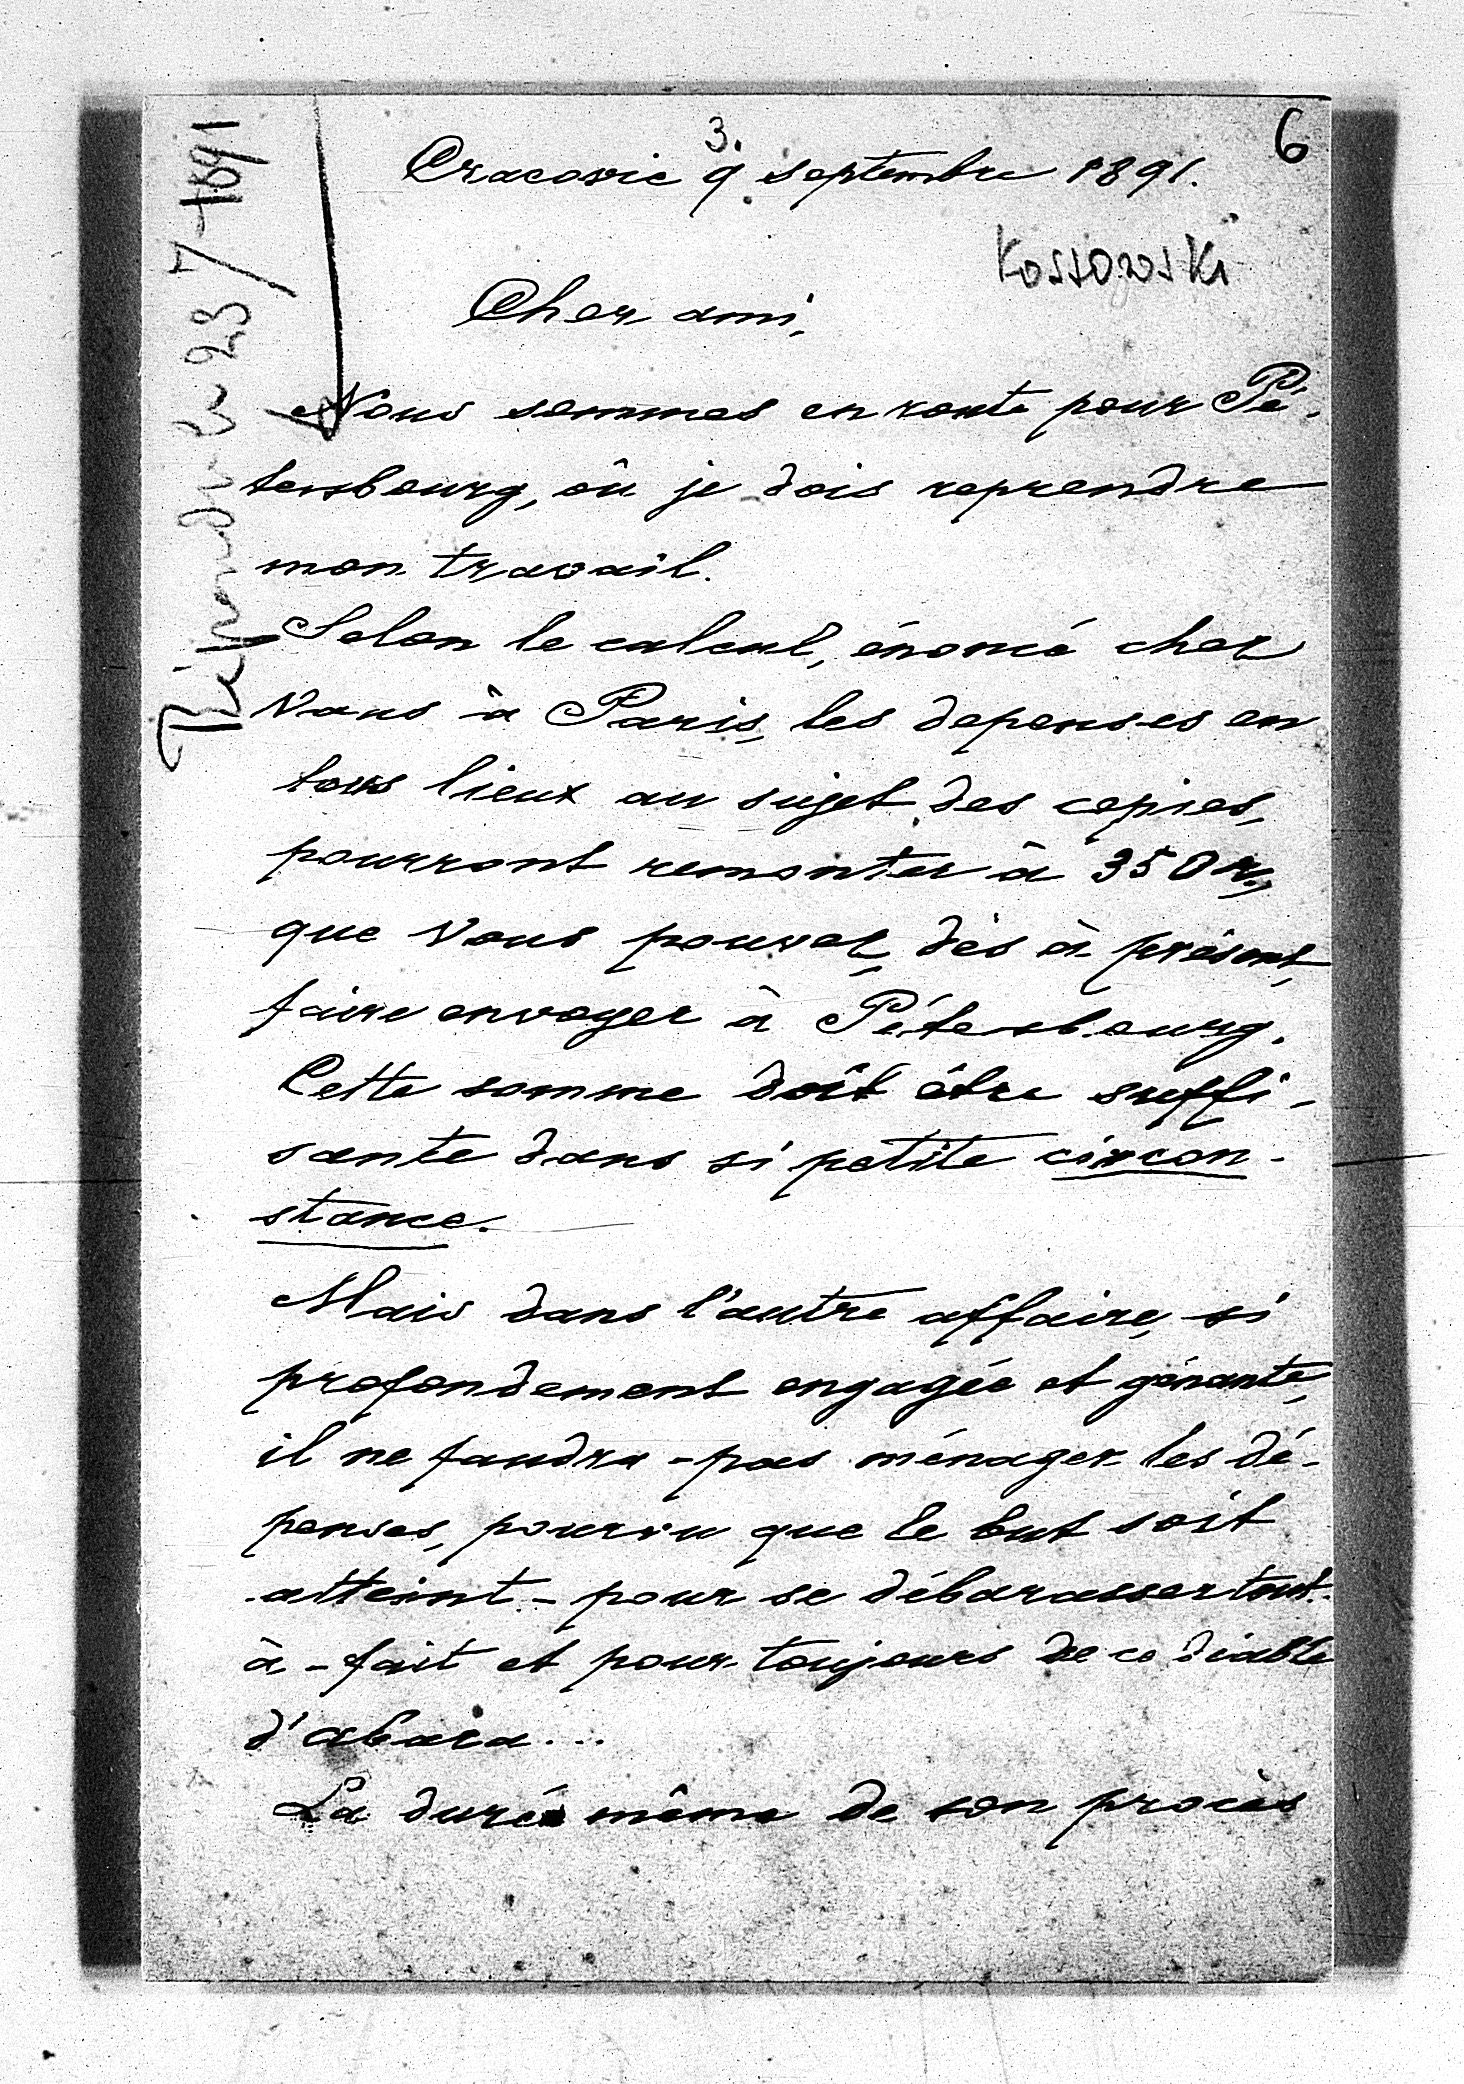 6
3.
Cracovie 9 septembre 1891.
Kossowski
Cher ami,
Nous sommes en route pour Pé-
tersbourg, où je dois reprendre
mon travail.
Selon le calcul, énoncé chez
Vous à Paris, les depenses en
tous lieux au sujet des copies,
pourront remonter à 350 r.,
que Vous pouvez, dès à présent,
faire envoyer à Pétersbourg.
Cette somme doit être suffi-
sante dans si petite circon-
stance.
Mais dans l'autre affaire, si
profondement engagée et gênante,
il ne faudra-pas ménager les dé-
penses, pourvu que le but soit
atteint - pour se débarasser tout-
à-fait et pour toujours de ce diable
d'abara...
La durée même de son procès
Répondu le 23/7 1891